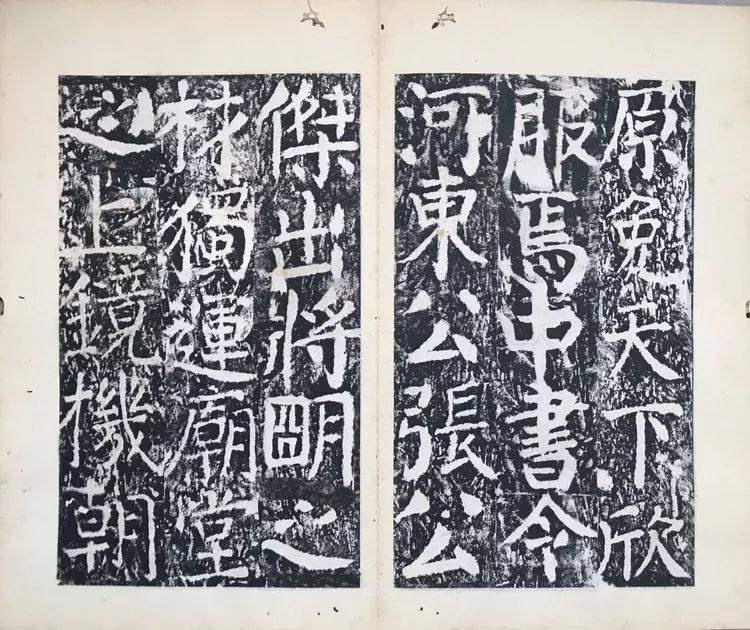 原免天下欣
服焉中書令
河東公張公
傑出將明之
材獨運廟堂
之上鏡機朝